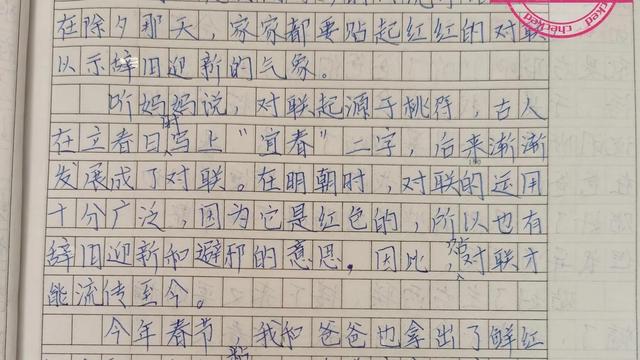 在除夕那天，家家都要贴起红红的对联
checked
以示辞旧迎新的气象。
听妈妈说，对联起源于桃符，古人
在立春日时写上“宜春”二字，后来渐渐
发展成了对联。在明朝时，对联的运用
十分广泛，因为它是红色的，所以也有
辞旧迎新和避邪的意思。因此，对联才
能流传至今。
今年春节，我和爸爸也拿出了鲜红